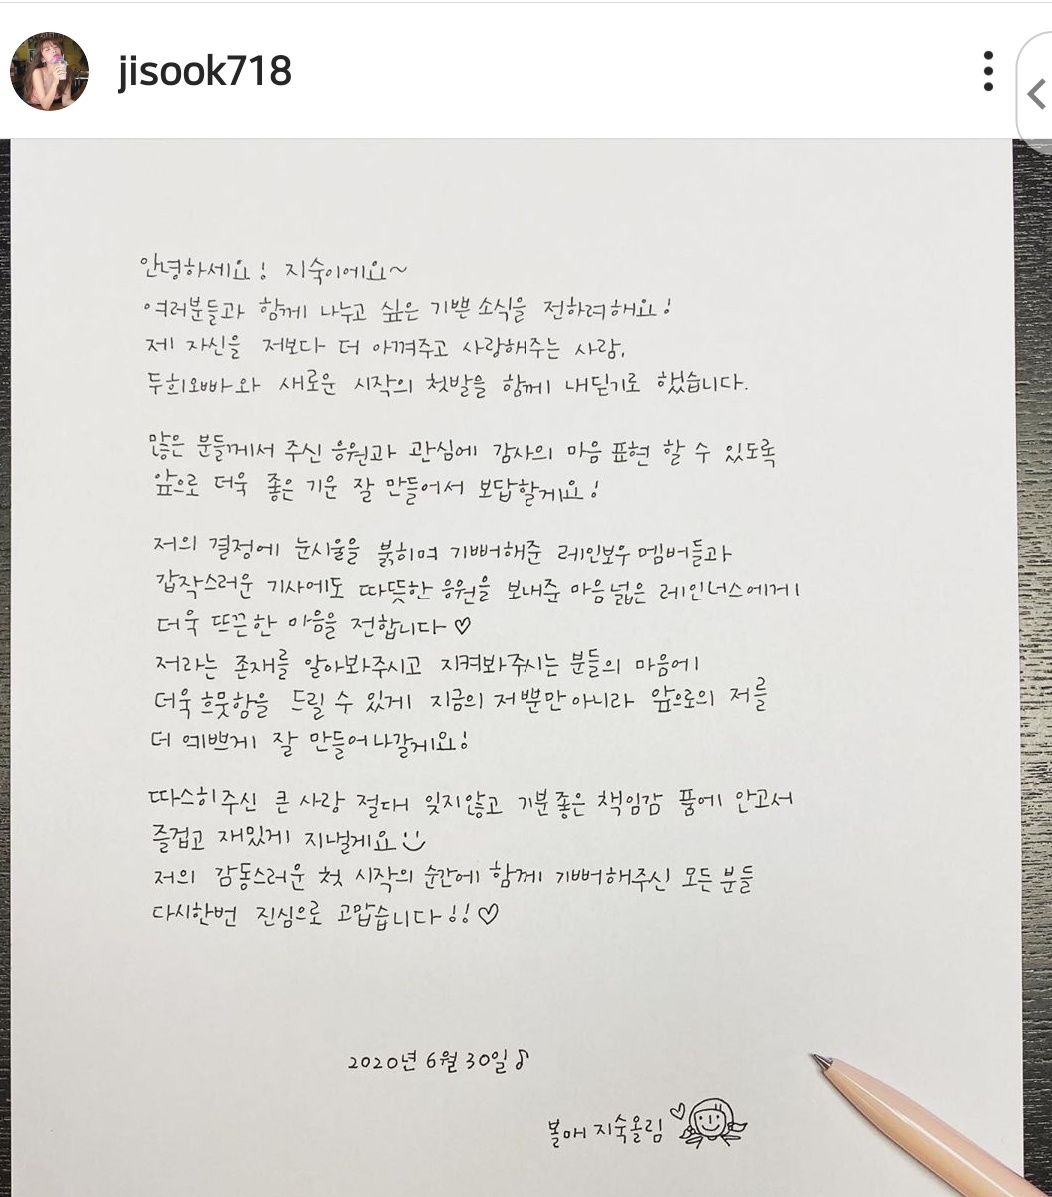 jisook718
안녕하세요! 지숙이에요~
여러분들과 함께 나누고 싶은 기쁜 소식을 전하려해요!
제 자신을 저보다 더 아껴주고 사랑해주는 사람,
두희오빠와 새로운 시작의 첫발을 함께 내딛기로 했습니다.
많은 분들께서 주신 응원과 관심에 감사의 마음 표현 할 수 있도록
앞으로 더욱 좋은 기운 잘 만들어서 보답할게요!
저의 결정에 눈시울을 붉히며 기뻐해준 레인보우 멤버들과
갑작스러운 기사에도 따뜻한 응원을 보내준 마음넓은 레인너스에게
더욱 뜨끈한 마음을 전합니다♡
저라는 존재를 알아봐주시고 지켜봐주시는 분들의 마음에
더욱 흐뭇함을 드릴 수 있게 지금의 저뿐만아니라 앞으로의 저를
더 예쁘게 잘 만들어나갈게요!
따스히주신 큰 사랑 절대 잊지않고 기분좋은 책임감 품에 안고서
즐겁고 재밌게 지낼게요
저의 감동스러운 첫 시작의 순간에 함께 기뻐해주신 모든 분들
다시한번 진심으로 고맙습니다!!♡
2020년 6월 30일♪
볼매 지숙올림♡